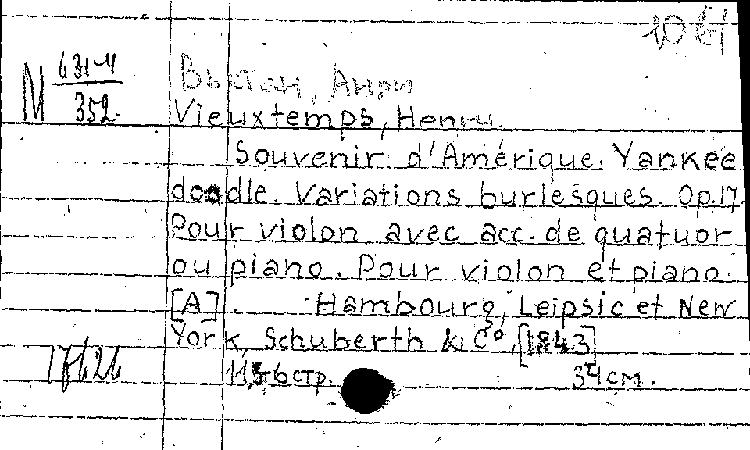 N 631-4
352
Вьетан, Анри
Vieuxtemps, Henri
Souvenir d'Amérique. Yankee
doodle. Variations burlesques. Op. 17
Pour violon avec acc. de quatuor
ou piano. Pour violon et piano.
[A]. Hambourg, Leipsic et New
York, Schuberth & Cº, [1843]
стр. 34 см.